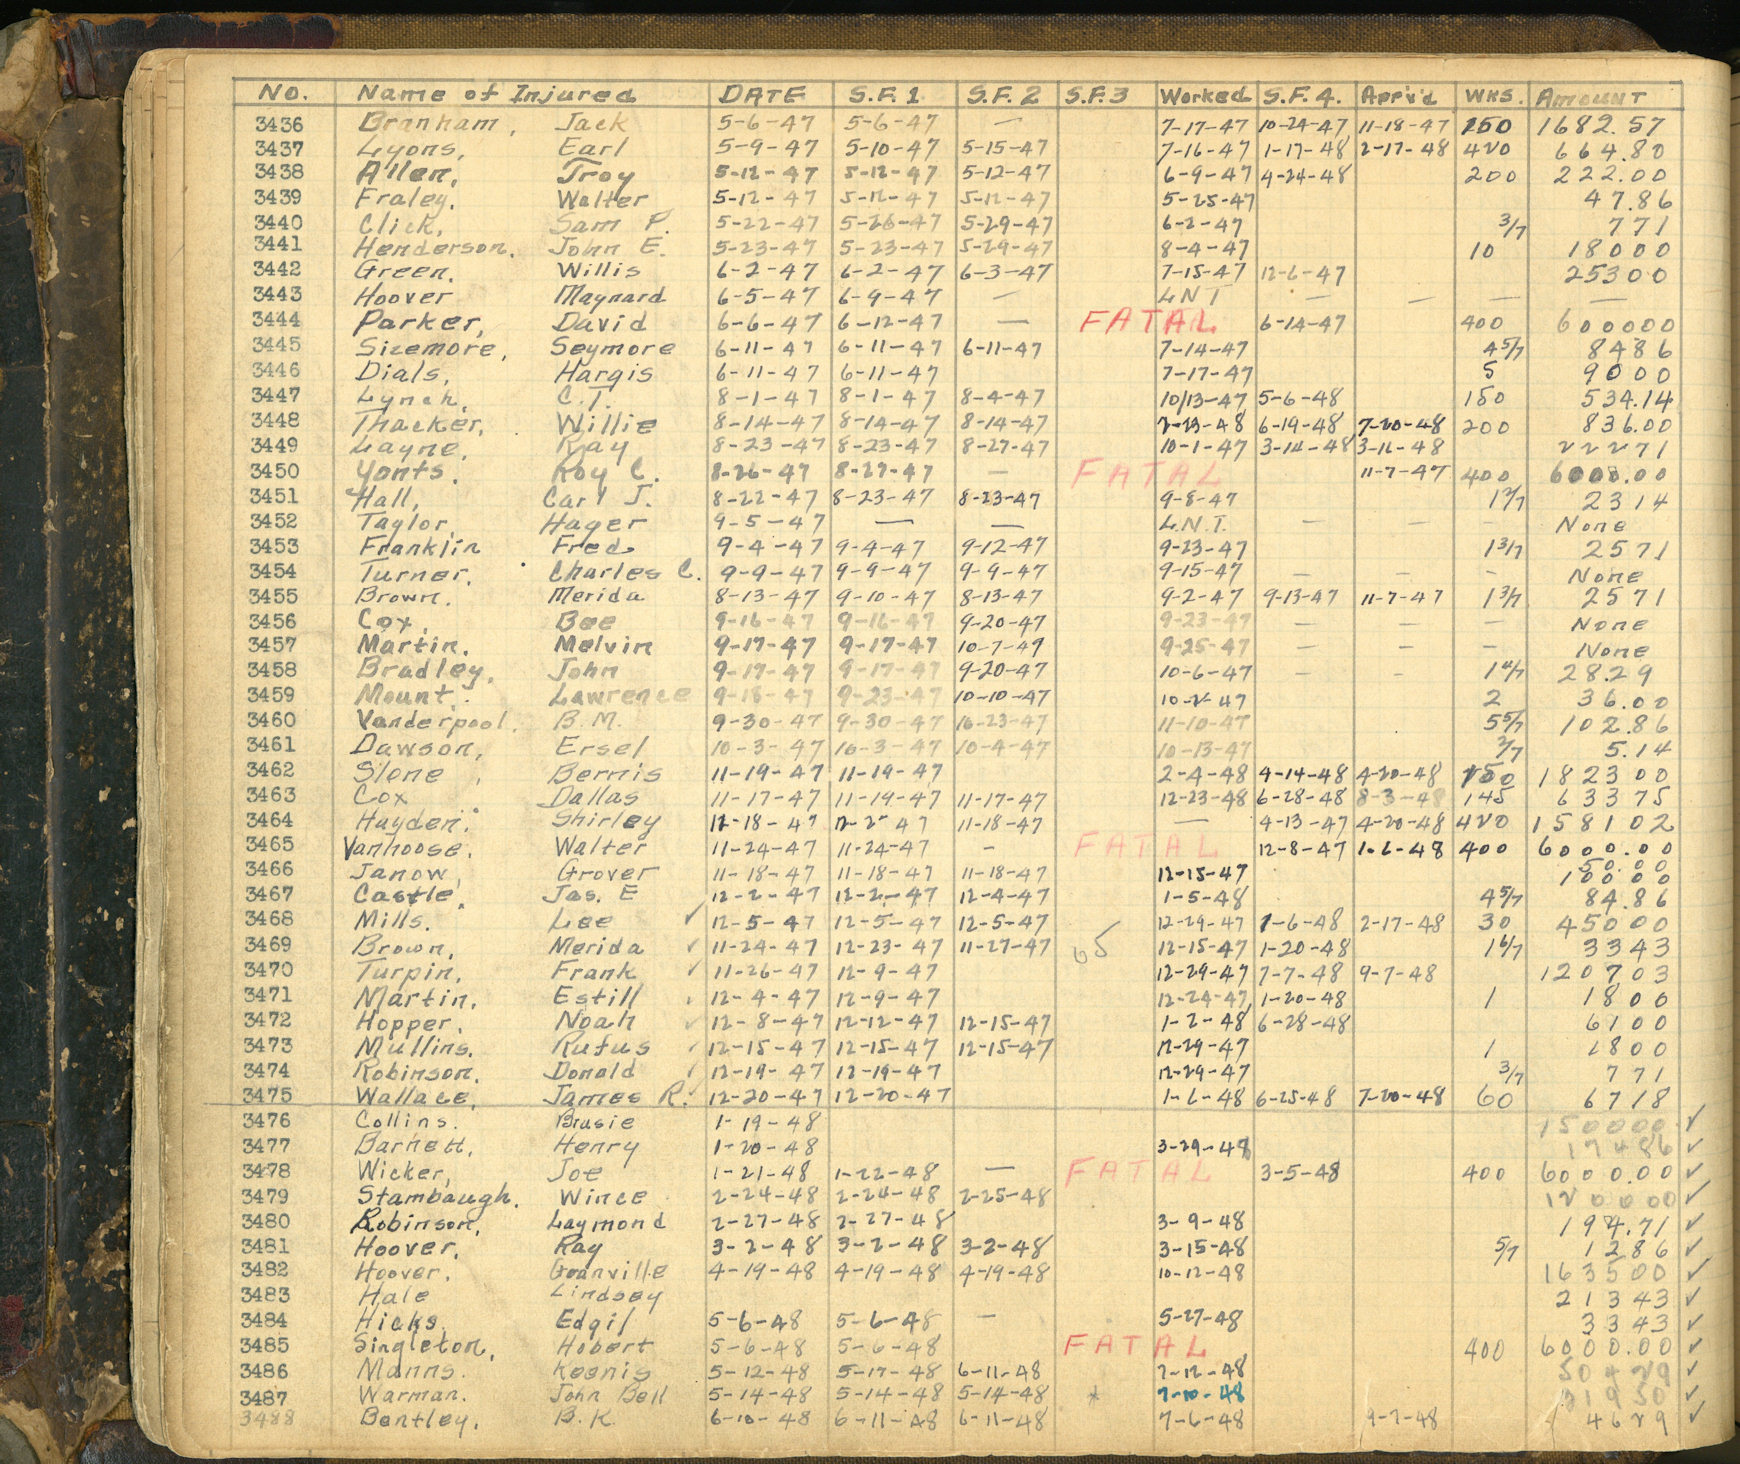 No. Name of Injured DATE S.F. 1 S.F. 2 S.F.3 Worked S.F. 4. Appr'd WKS. AMOUNT
3436 Branham, Jack 5-6-47 5-6-47 — 7-17-47 10-24-47 11-18-47 150 1682.57
3437 Lyons, Earl 5-9-47 5-10-47 5-15-47 7-16-47 1-17-48 2-17-48 420 664.80
3438 Allen, Troy 5-12-47 5-12-47 5-12-47 6-9-47 4-24-48 200 222.00
3439 Fraley, Walter 5-12-47 5-12-47 5-12-47 5-25-47 47.86
3440 Click, Sam P. 5-22-47 5-26-47 5-29-47 6-2-47 3/7 771
3441 Henderson, John E. 5-23-47 5-23-47 5-29-47 8-4-47 10 18000
3442 Green, Willis 6-2-47 6-2-47 6-3-47 7-15-47 12-6-47 25300
3443 Hoover Maynard 6-5-47 6-9-47 — LNT — — — —
3444 Parker, David 6-6-47 6-12-47 — FATAL 6-14-47 400 600000
3445 Sizemore, Seymore 6-11-47 6-11-47 6-11-47 7-14-47 4 5/7 8486
3446 Dials, Hargis 6-11-47 6-11-47 7-17-47 5 9000
3447 Lynch, C.T. 8-1-47 8-1-47 8-4-47 10/13-47 5-6-48 150 534.14
3448 Thacker, Willie 8-14-47 8-14-47 8-14-47 2-23-48 6-19-48 7-20-48 200 836.00
3449 Layne, Ray 8-23-47 8-23-47 8-27-47 10-1-47 3-14-48 3-16-48 22271
3450 Yonts, Roy C. 8-26-47 8-27-47 — FATAL 11-7-47 400 6000.00
3451 Hall, Carl J. 8-22-47 8-23-47 8-23-47 9-8-47 1 2/7 2314
3452 Taylor, Hager 9-5-47 — — L.N.T. — — — None
3453 Franklin Fred 9-4-47 9-4-47 9-12-47 9-23-47 1 3/7 2571
3454 Turner, Charles C. 9-9-47 9-9-47 9-9-47 9-15-47 — — — None
3455 Brown, Merida 8-13-47 9-10-47 8-13-47 9-2-47 9-13-47 11-7-47 1 3/7 2571
3456 Cox, Bee 9-16-47 9-16-47 9-20-47 9-23-47 — — — None
3457 Martin, Melvin 9-17-47 9-17-47 10-7-47 9-25-47 — — — None
3458 Bradley, John 9-17-47 9-17-47 9-20-47 10-6-47 — — 1 4/7 28.29
3459 Mount, Lawrence 9-18-47 9-23-47 10-10-47 10-2-47 2 36.00
3460 Vanderpool, B.M. 9-30-47 9-30-47 10-23-47 11-10-47 5 5/7 102.86
3461 Dawson, Ersel 10-3-47 10-3-47 10-4-47 10-13-47 2/7 5.14
3462 Slone, Bernis 11-19-47 11-19-47 2-4-48 4-14-48 4-20-48 150 182300
3463 Cox Dallas 11-17-47 11-19-47 11-17-47 12-23-48 6-28-48 8-3-48 145 63375
3464 Hayden, Shirley 12-18-47 12-2-47 11-18-47 — 4-13-47 4-20-48 420 158102
3465 Vanhoose, Walter 11-24-47 11-24-47 — FATAL 12-8-47 1-6-48 400 6000.00
3466 Janow, Grover 11-18-47 11-18-47 11-18-47 12-15-47 50.00 10000
3467 Castle, Jas. E 12-2-47 12-2-47 12-4-47 1-5-48 4 5/7 84.86
3468 Mills, Lee ✓ 12-5-47 12-5-47 12-5-47 12-29-47 1-6-48 2-17-48 30 45000
3469 Brown, Merida ✓ 11-24-47 12-23-47 11-27-47 65 12-15-47 1-20-48 1 6/7 3343
3470 Turpin, Frank ✓ 11-26-47 12-9-47 12-29-47 7-7-48 9-7-48 120703
3471 Martin, Estill 12-4-47 12-9-47 12-24-47 1-20-48 1 1800
3472 Hopper, Noah ✓ 12-8-47 12-12-47 12-15-47 1-2-48 6-28-48 6100
3473 Mullins, Rufus ✓ 12-15-47 12-15-47 12-15-47 12-29-47 1 1800
3474 Robinson, Donald ✓ 12-19-47 12-19-47 12-29-47 3/7 771
3475 Wallace, James R. ✓ 12-20-47 12-20-47 1-6-48 6-25-48 7-20-48 60 6718
3476 Collins, Brusie 1-19-48 150000 ✓
3477 Barnett, Henry 1-20-48 3-29-48 17486 ✓
3478 Wicker, Joe 1-21-48 1-22-48 — FATAL 3-5-48 400 6000.00 ✓
3479 Stambaugh, Wince 2-24-48 2-24-48 2-25-48 120000 ✓
3480 Robinson, Laymond 2-27-48 2-27-48 3-9-48 194.71 ✓
3481 Hoover, Ray 3-2-48 3-2-48 3-2-48 3-15-48 5/7 1286 ✓
3482 Hoover, Granville 4-19-48 4-19-48 4-19-48 10-12-48 163500 ✓
3483 Hale Lindsey 21343 ✓
3484 Hicks Edgil 5-6-48 5-6-48 — 5-27-48 3343 ✓
3485 Singleton, Hobert 5-6-48 5-6-48 FATAL 400 6000.00 ✓
3486 Manns, Keenis 5-12-48 5-17-48 6-11-48 7-12-48 ✓
3487 Warman, John Bell 5-14-48 5-14-48 5-14-48 7-10-48 ✓
3488 Bentley, B.K. 6-10-48 6-11-48 6-11-48 7-6-48 9-7-48 4629 ✓